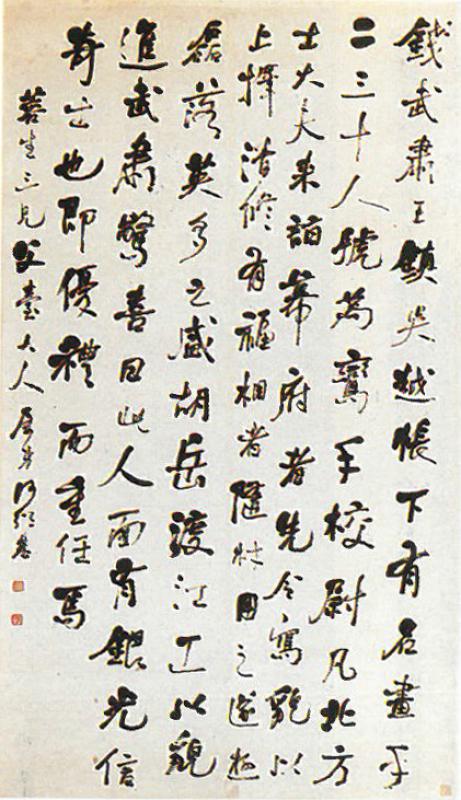 錢武肅王鎮吳越帳下有名畫手
二三十人號為鸞手校尉凡北方
士大夫來詣幕府者先令寫貌以
上擇清修有福相者隨材用之遂極
磊落英多之盛胡岳渡江工以貌
進武肅驚喜曰此人面有銀光信
奇士也即優禮而重任焉
蓉生三兄父臺大人屬 何紹基